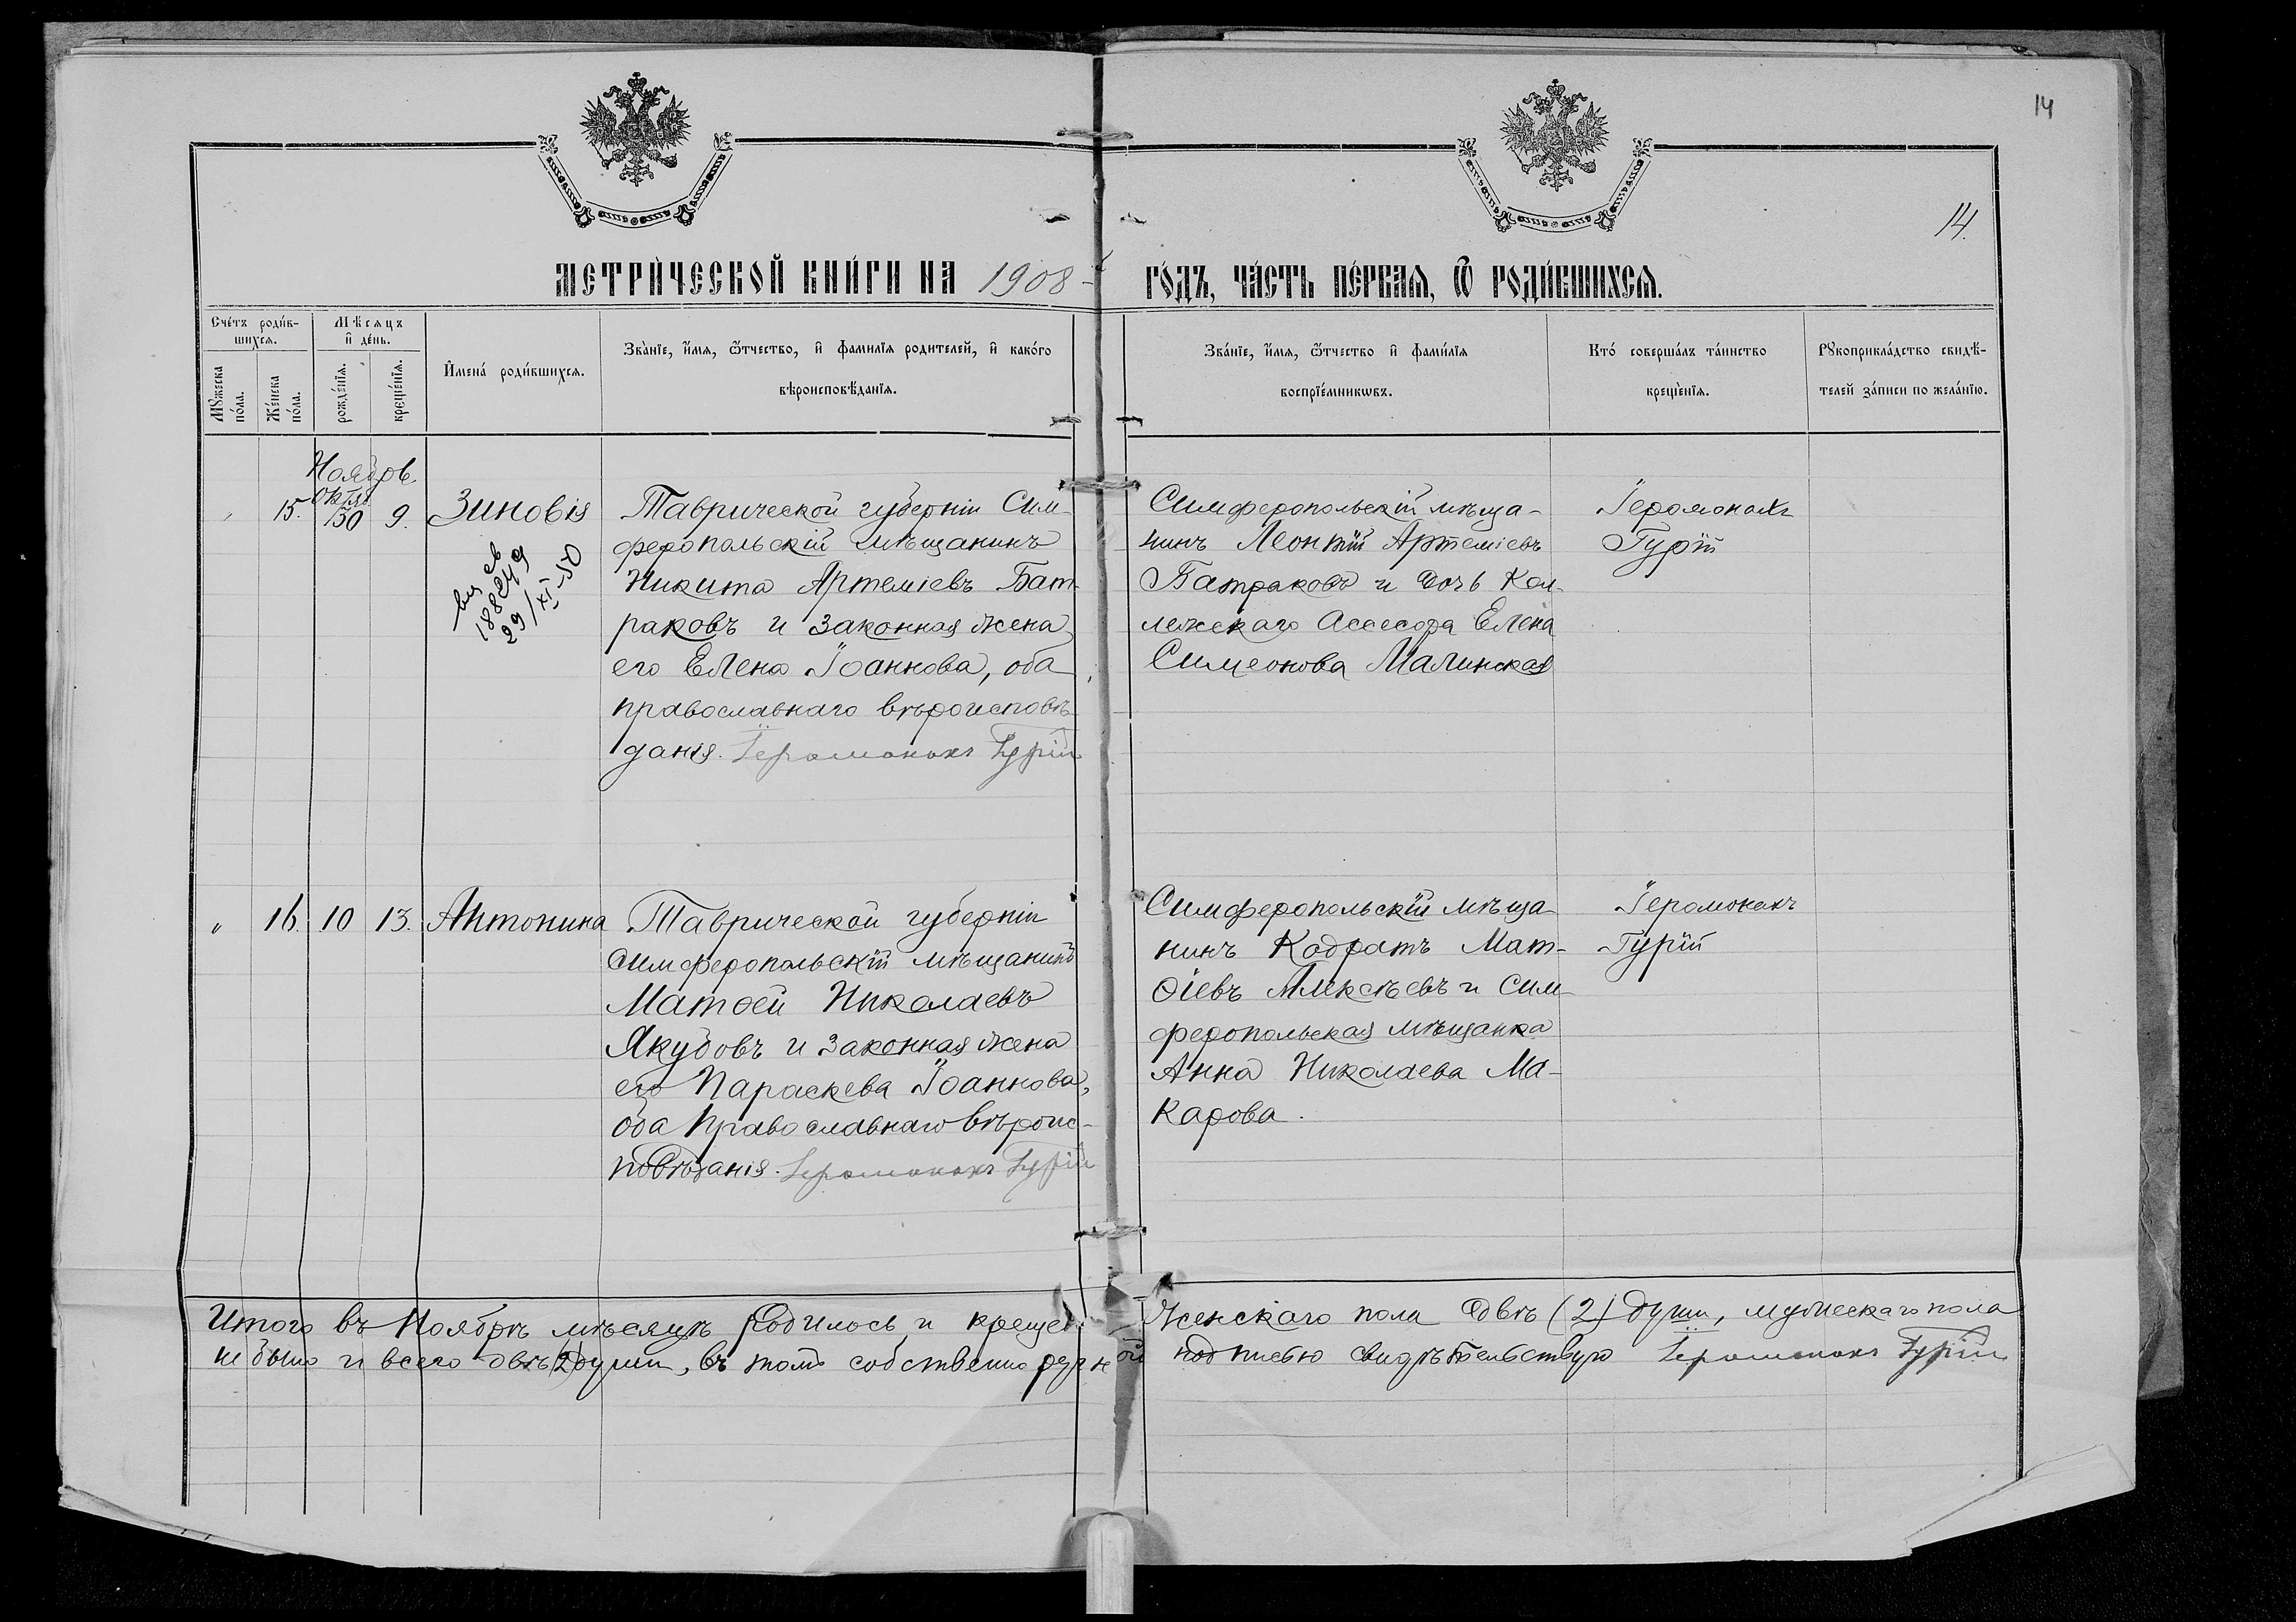 14
14.
МЕТРИ́ЧЕСКОЙ КНИ́ГИ НА 1908 ГО́ДЪ, ЧА́СТЬ ПЕ́РВАЯ, Ѿ РОДИ́ВШИХСЯ.
Сче́тъ роди́в-
шихся.
Мѣ́сяцъ
и҆ де́нь.
Мꙋ́жеска
по́ла.
Же́нска
по́ла.
рожде́нїѧ.
креще́нїѧ.
И҆мена́ роди́вшихся.
Зва́нїе, и҆́мѧ, ѻ҆́тчество, и҆ фами́лїѧ родителей, и҆ како́го
вѣроисповѣ́данїѧ.
Зва́нїе, и҆́мѧ, ѻ҆́тчество и҆ фами́лїѧ
воспрїе́мникѡвъ.
Кто́ соверша́лъ та́инство
креще́нїѧ.
Рꙋкоприкла́дство свидѣ́-
телей за́писи по жела́нїю.
Ноябрь.
Октяб.
15. 30 9. Зиновія
Таврической губерніи Сим-
феропольскій мѣщанинъ
Никита Артеміевъ Бат-
раковъ и законная жена
его Елена Іоаннова, оба
православнаго вѣроисповѣ-
данія. Іеромонахъ Гурій
188249
29/XI-50
Симферопольскій мѣща-
нинъ Леонтій Артеміевъ
Батраковъ и дочь Кол-
лежскаго Ассесора Елена
Симеонова Малинская
Іеромонахъ
Гурій
" 16. 10 13. Антонина
Таврической губерніи
симферопольскій мѣщанинъ
Матѳей Николаевъ
Якубовъ и законная жена
его Параскева Іоаннова,
оба Православнаго вѣроис-
повѣданія. Іеромонахъ Гурій
Симферопольскій мѣща
нинъ Кодратъ Мат-
ѳіевъ Алексѣевъ и Сим-
феропольская мѣщанка
Анна Николаева Ма-
карова.
Іеромонахъ
Гурій
Итого въ Ноябрѣ мѣсяцѣ родилось и крещено женскаго пола двѣ (2) души, мужескаго пола
не было и всего двѣ (2) души, въ томъ собственноручной подписью свидѣтельствую Іеромонахъ Гурій